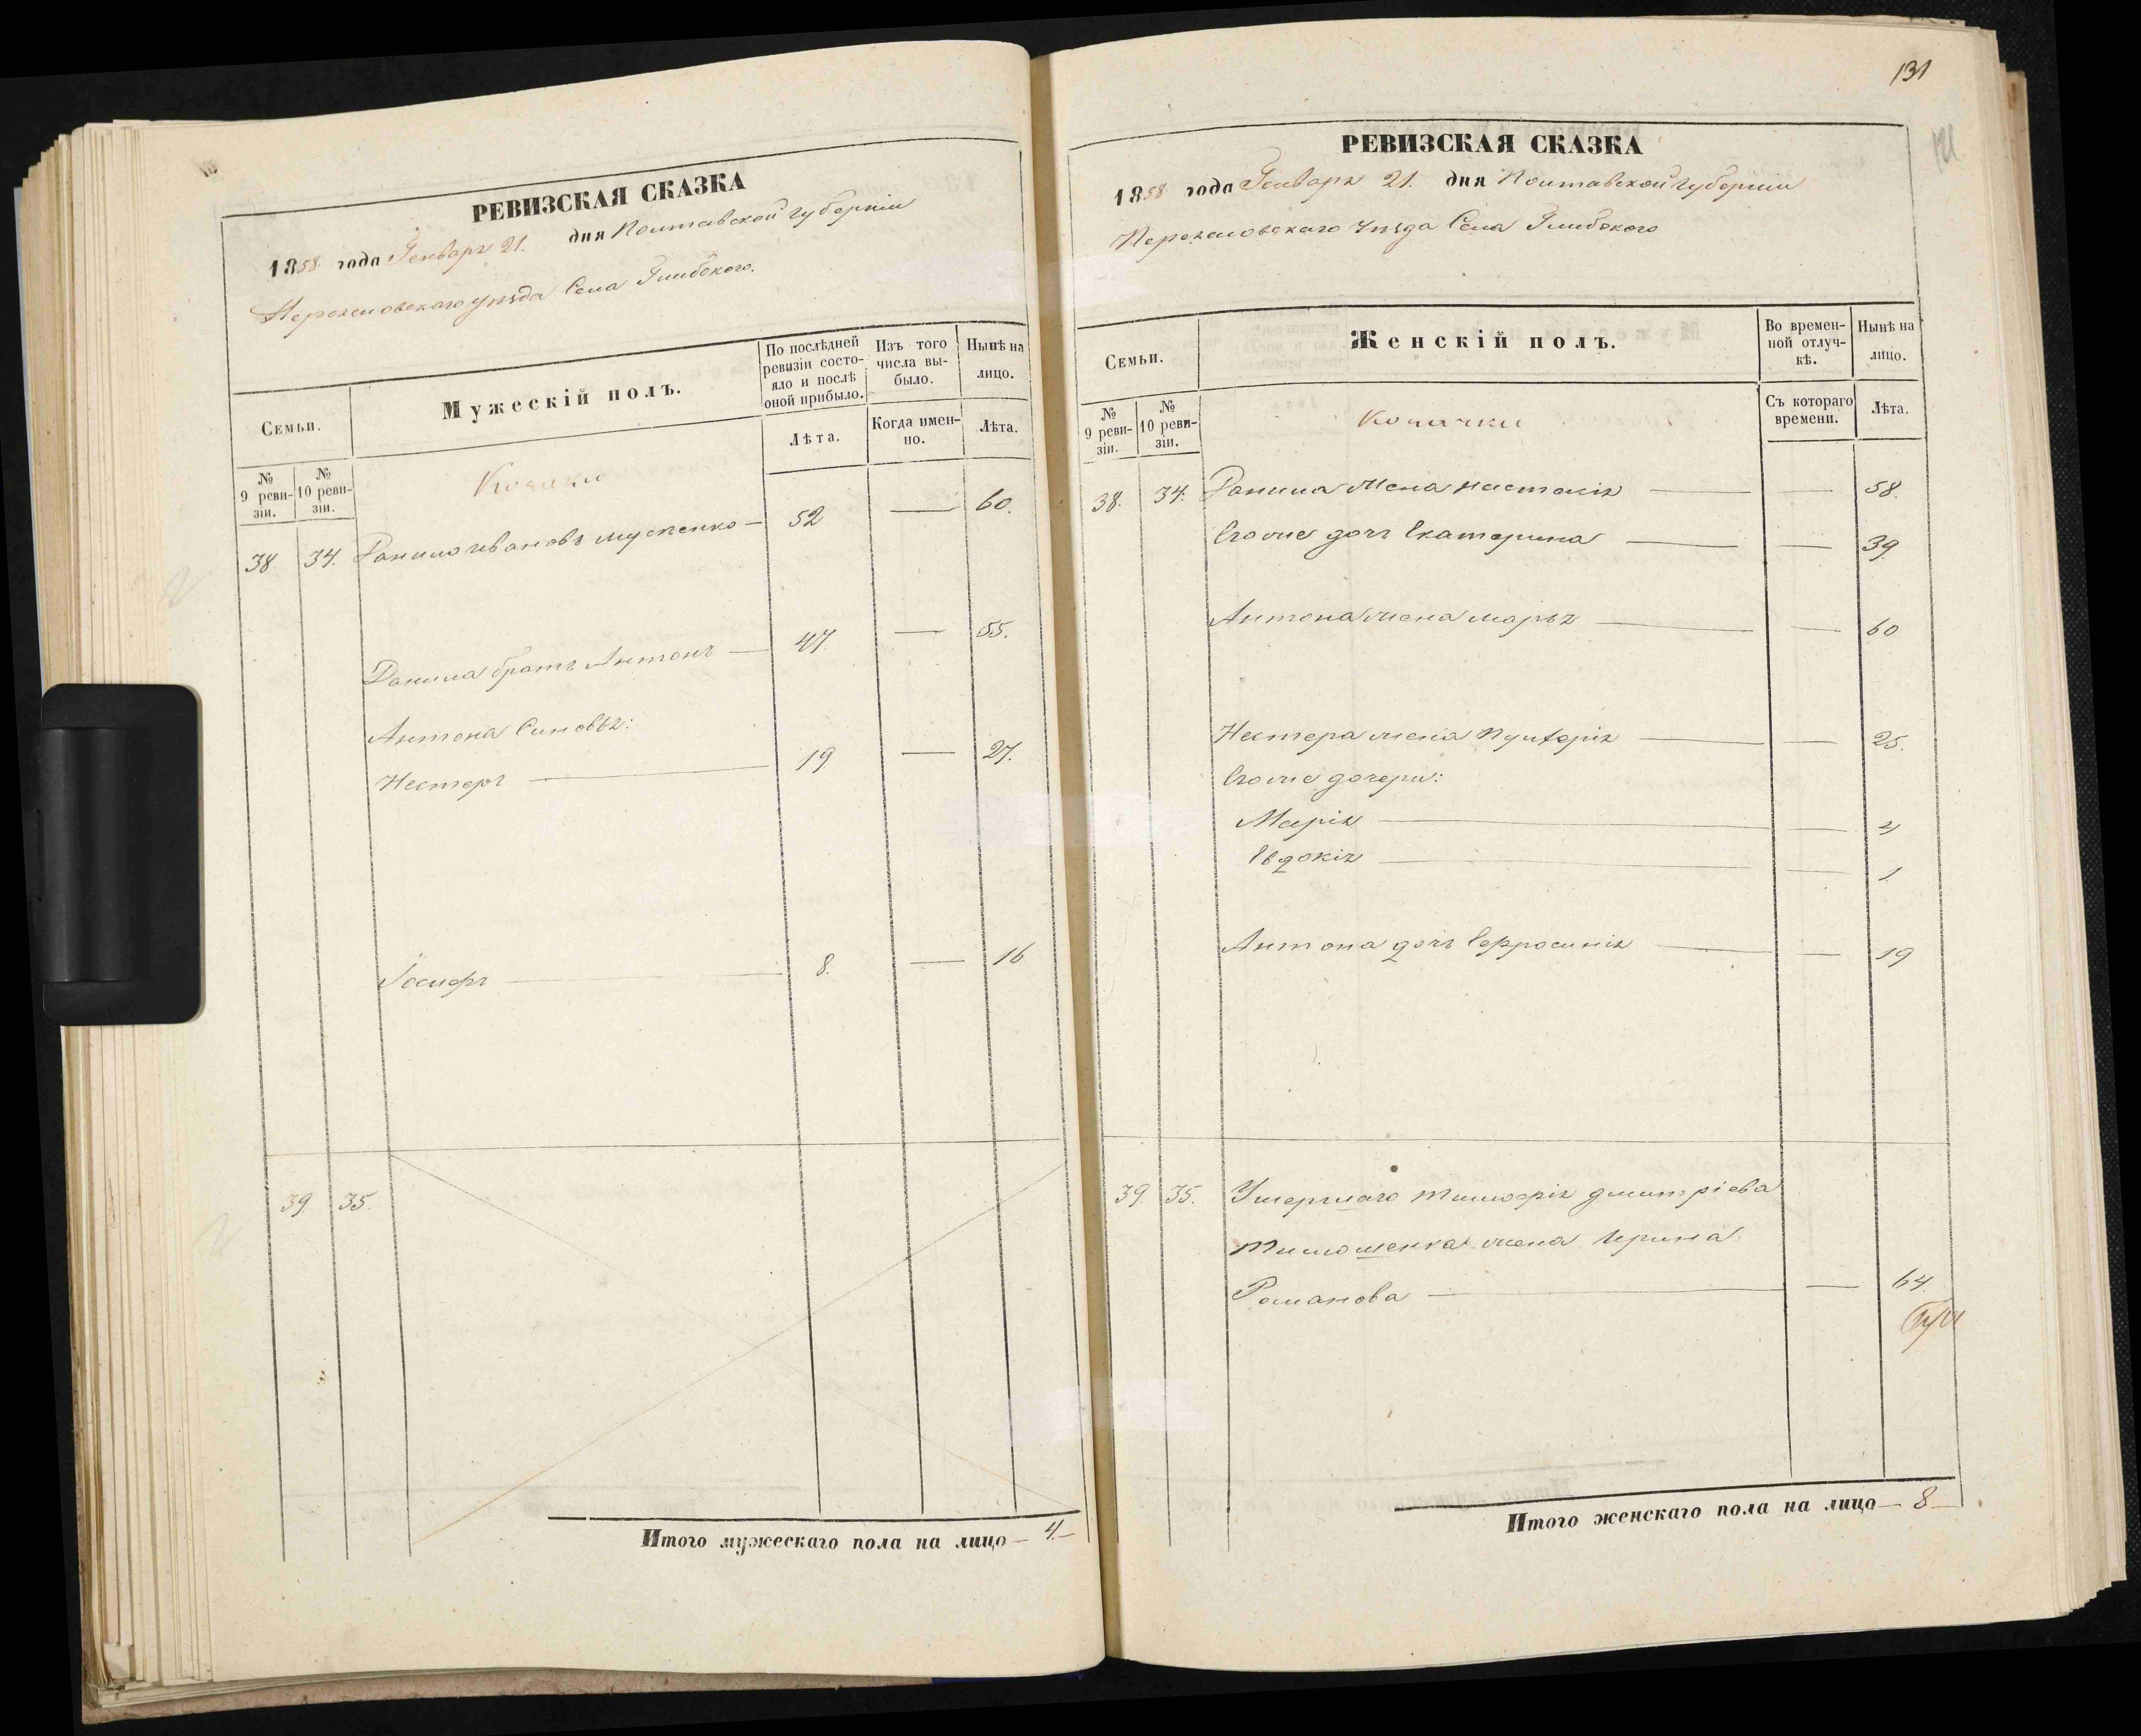 РЕВИЗСКАЯ СКАЗКА
1858 года Генваря 21. дня Полтавской губерніи
Переяславскаго уѣзда Села Глибокого.
Семьи.
Мужескій полъ.
По послѣдней ревизіи состояло и послѣ оной прибыло.
Изъ того числа выбыло.
Нынѣ на лицо.
№ 9 ревизіи.
№ 10 ревизіи.
Лѣта.
Когда именно.
Лѣта.
Козаки
38 34. Данило Ивановъ — 52 — 60.
Данила братъ Антонъ — 47. — 55.
Антона Синовья:
Нестеръ — 19 — 27.
Іосифъ — 8. — 16
39 35.
Итого мужескаго пола на лицо — 4. —
131
121
РЕВИЗСКАЯ СКАЗКА
1858 года Генваря 21. дня Полтавской губерніи
Переяславскаго уѣзда Села Глибокого
Семьи.
Женскій полъ.
Во временной отлучкѣ.
Нынѣ на лицо.
№ 9 ревизіи.
№ 10 ревизіи.
Съ котораго времени.
Лѣта.
Козачки
38. 34. Данила жена Настасія — — 58.
Егоже дочь Екатерина — — 39.
Антона жена Марья — — 60
Нестера жена — — 25.
Егоже дочери:
Марія —
Евдокія — — 1
Антона дочь Ефросинія — — 19
39. 35. Умершаго Тимофія Дмитріева
Тимошенка жена Ирина
Романова — — 64.
Итого женскаго пола на лицо — 8 —